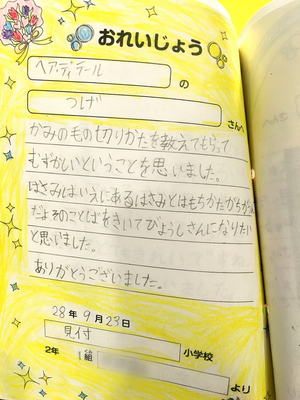 おれいじょう
ヘアーディテール
の
つげ
さんへ
かみの毛の切りかたを教えてもらって
むずかしいということを思いました。
はさみはいえにあるはさみとはもちかたがちがうん
だよそのことばをきいてびようしさんになりたい
と思いました。
ありがとうございました。
28年9月23日
見付
小学校
2年1組
より